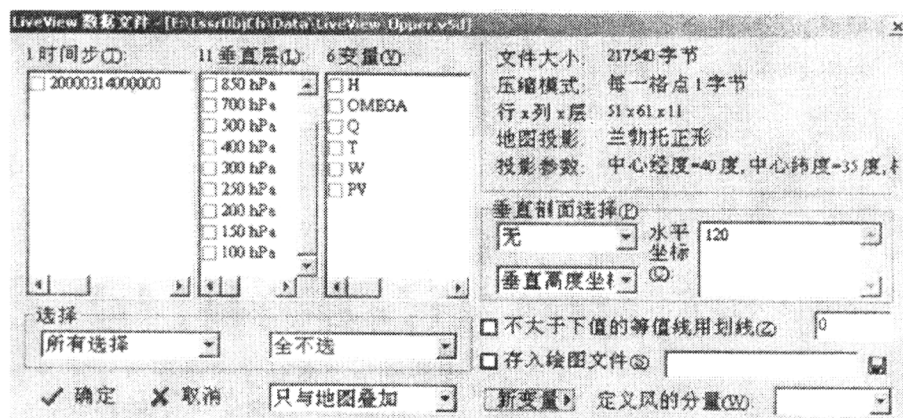 LiveView 数据文件 - [E:\LssrObjCh\Data\LiveView_Upper.v5d]
1时间步(T):
20000314000000
11垂直层(L):
850 hPa
700 hPa
500 hPa
400 hPa
300 hPa
250 hPa
200 hPa
150 hPa
100 hPa
6变量(V):
H
OMEGA
Q
T
W
PV
文件大小: 217540字节
压缩模式: 每一格点1字节
行x列x层: 51x61x11
地图投影: 兰勃托正形
投影参数: 中心经度=40度,中心纬度=35度,
垂直剖面选择(P)
无
垂直高度坐标
水平坐标(C):
120
选择
所有选择
全不选
不大于下值的等值线用划线(Z)
0
存入绘图文件(S)
确定
取消
只与地图叠加
新变量
定义风的分量(W):